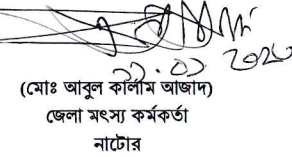 (মোঃ আবুল কালাম আজাদ)
জেলা মৎস্য কর্মকর্তা
নাটোর